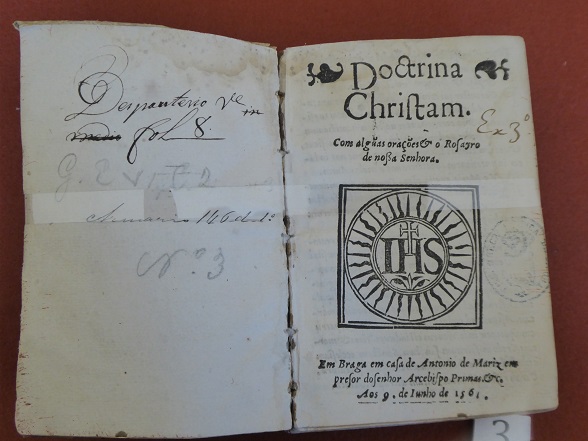 Despauterio Ve in
fol 8
G. 2 V I E 2
Nº 3
Doctrina
Christam.
Com algũas orações & o Rosayro
de nossa Senhora.
Ex 3º
IHS
Em Braga em casa de Antonio de Mariz em
presor do senhor Arcebispo Primas. &c.
Aos 9. de Iunho de 1561.
3